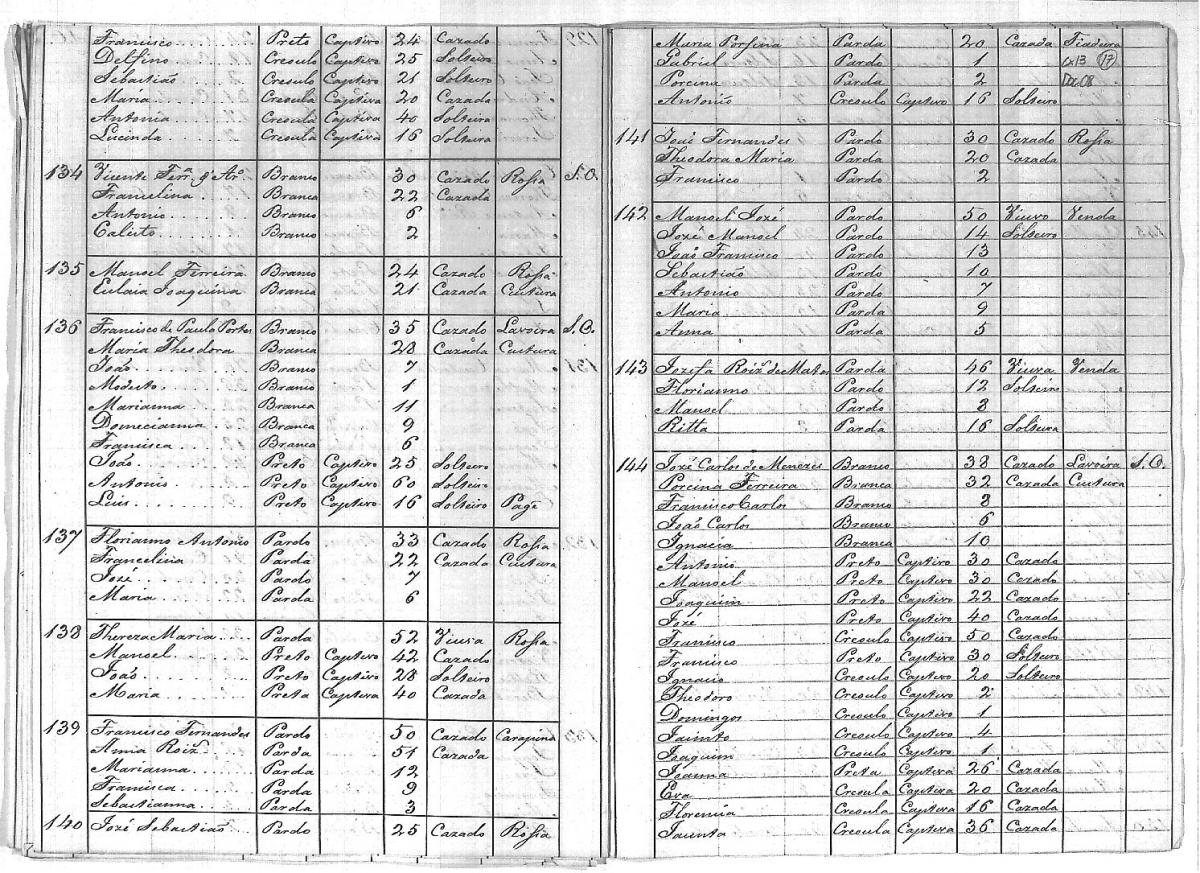 Francisco Preto Captivo 24 Cazado
Delfino Creoulo Captivo 25 Solteiro
Sebastião Creoulo Captivo 21 Solteiro
Maria Creoula Captiva 20 Cazada
Antonia Creoula Captiva 40 Solteira
Lucinda Creoula Captiva 16 Solteira
134 Vicente Ferr.ª d' Ar.º Branco 30 Cazado Rossa S. O.
Francelina Branca 22 Cazada
Antonio Branco 6
Calisto Branco 2
135 Manoel Ferreira Branco 24 Cazado Rossa
Eulaia Joaquina Branca 21 Cazada Custura
136 Francisco de Paulo Portos Branco 35 Cazado Lavoira S. O.
Maria Theodora Branca 28 Cazada Custura
João Branco 7
Modesto Branco 1
Marianna Branca 11
Domecianna Branca 9
Francisca Branca 6
João Preto Captivo 25 Solteiro
Antonio Preto Captivo 60 Solteiro
Luis Preto Captivo 16 Solteiro Page
137 Florianno Antonio Pardo 33 Cazado Rossa
Francelina Parda 22 Cazada Custura
José Pardo 7
Maria Parda 6
138 Thereza Maria Parda 52 Viuva Rossa
Manoel Preto Captivo 42 Cazado
João Preto Captivo 28 Solteiro
Maria Preta Captiva 40 Cazada
139 Francisco Fernandes Pardo 50 Cazado Carapina
Anna Roiz Parda 51 Cazada
Marianna Parda 12
Francisca Parda 9
Sebastianna Parda 3
140 José Sebastião Pardo 25 Cazado Rossa
Maria Porfiria Parda 20 Cazada Fiadeira
Gabriel Pardo 1 Cx13 17
Porcina Parda 2 Doc 08
Antonio Creoulo Captivo 16 Solteiro
141 José Fernandes Pardo 30 Cazado Rossa
Theodora Maria Parda 20 Cazada
Francisco Pardo 2
142 Manoel José Pardo 50 Viuvo Venda
José Manoel Pardo 14 Solteiro
João Francisco Pardo 13
Sebastião Pardo 10
Antonio Pardo 7
Maria Parda 9
Anna Parda 5
143 Jozefa Roiz de Matos Parda 46 Viuva Venda
Florianno Pardo 12 Solteiro
Manoel Pardo 8
Ritta Parda 16 Solteira
144 José Carlos de Menezes Branco 38 Cazado Lavoira S. O.
Porcina Ferreira Branca 32 Cazada Custura
Francisco Carlos Branco 8
João Carlos Branco 6
Ignacia Branca 10
Antonio Preto Captivo 30 Cazado
Manoel Preto Captivo 30 Cazado
Joaquim Preto Captivo 22 Cazado
José Preto Captivo 40 Cazado
Francisco Creoulo Captivo 50 Cazado
Francisco Preto Captivo 30 Solteiro
Ignacio Creoulo Captivo 20 Solteiro
Theodoro Creoulo Captivo 2
Domingos Creoulo Captivo 1
Jacinto Creoulo Captivo 4
Joaquim Creoulo Captivo 1
Joanna Preta Captiva 26 Cazada
Eva Creoula Captiva 20 Cazada
Florencia Creoula Captiva 16 Cazada
Jacinta Creoula Captiva 36 Cazada